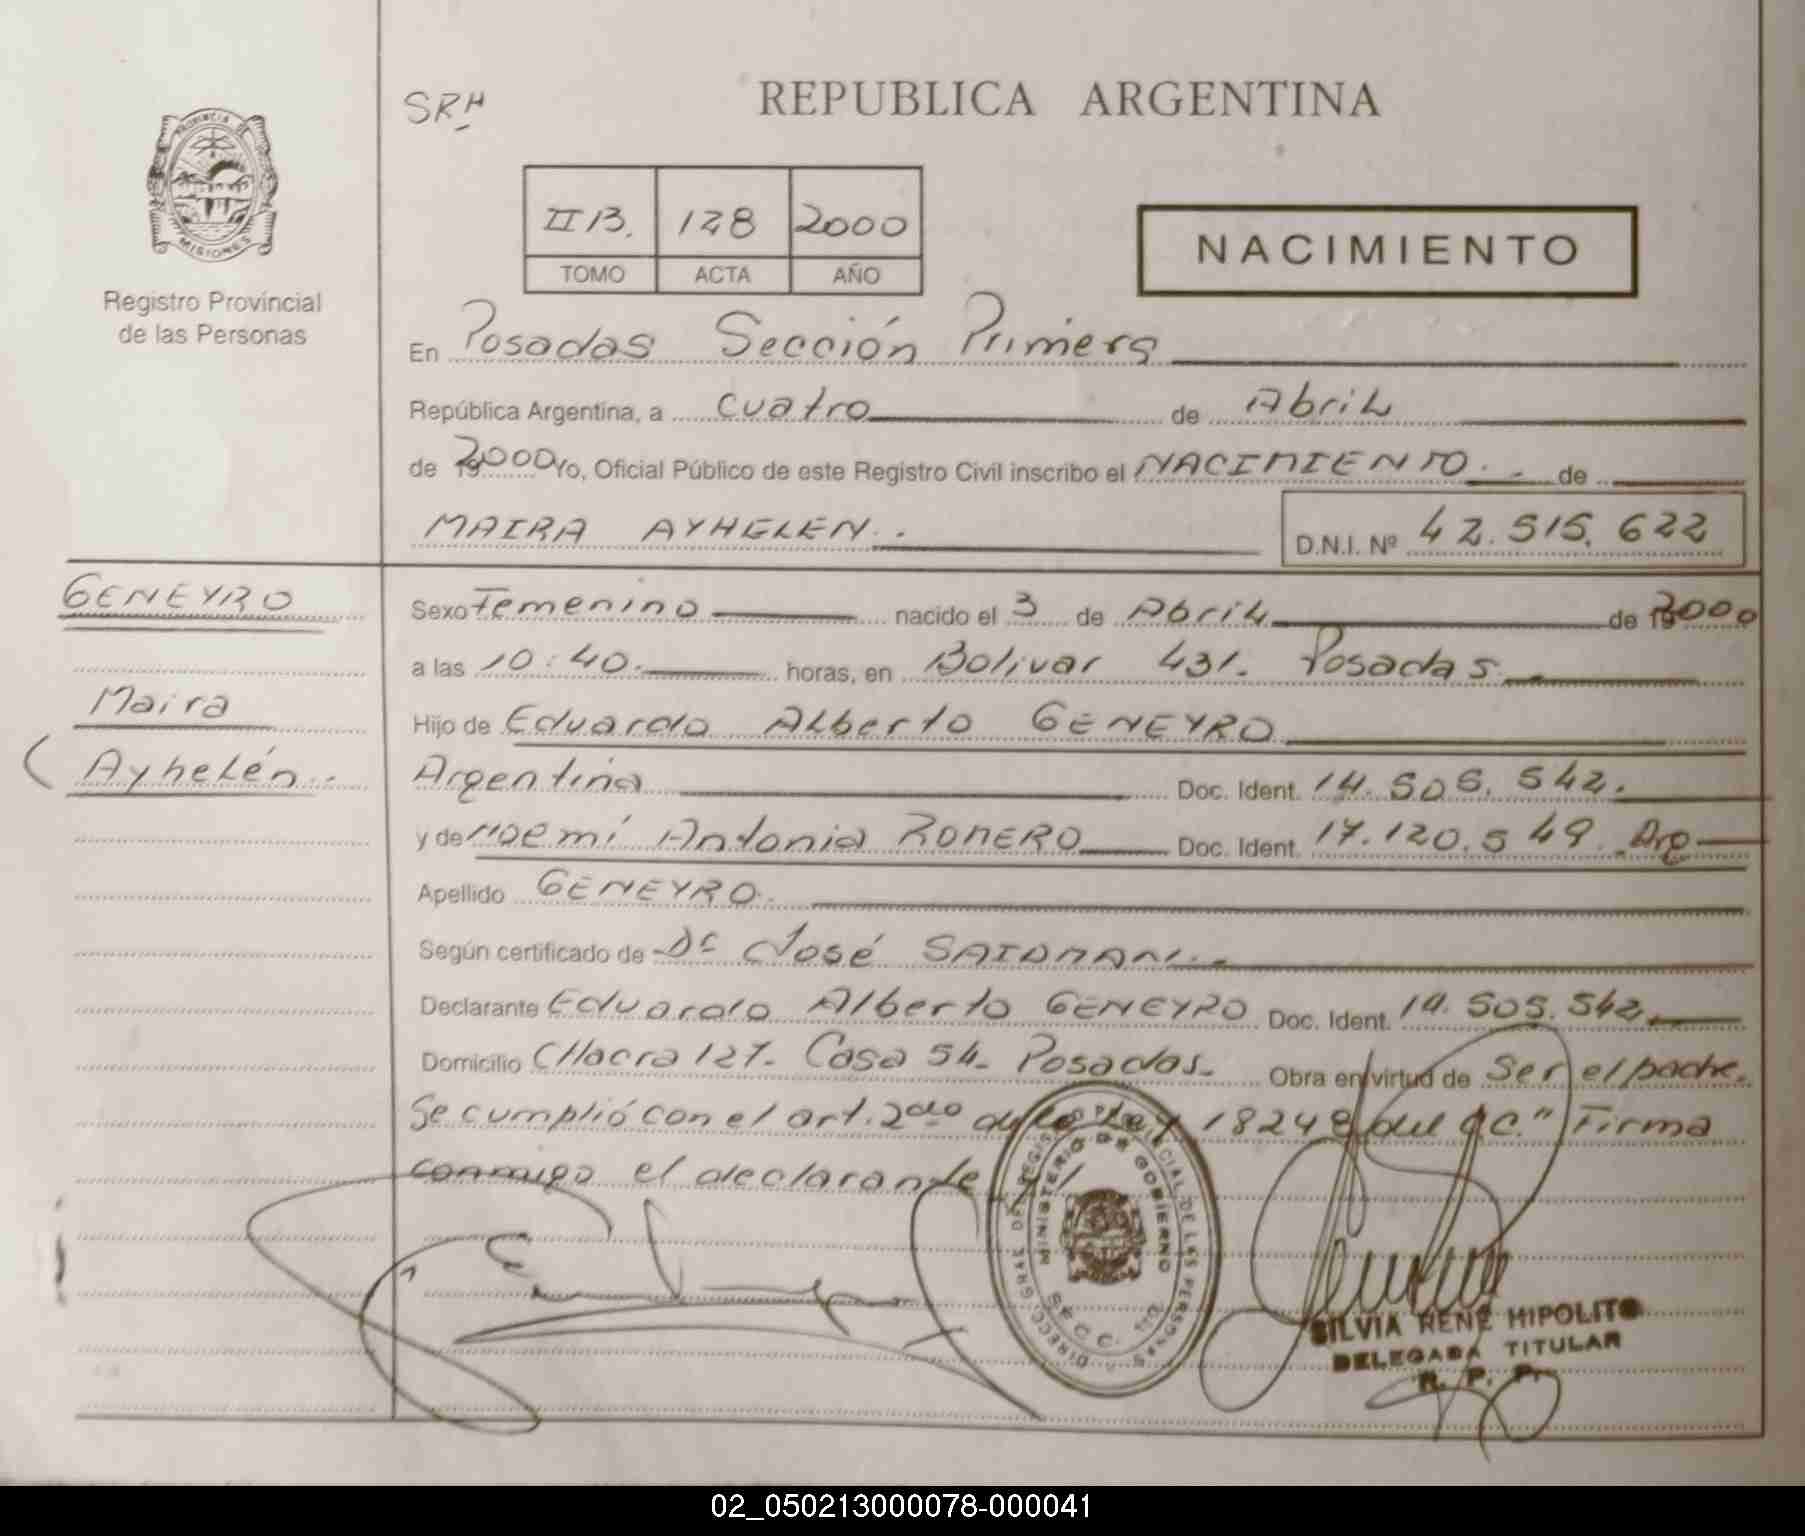 REPUBLICA ARGENTINA
SRH
PROVINCIA DE MISIONES
Registro Provincial
de las Personas
II B. 128 2000
TOMO ACTA AÑO
NACIMIENTO
En Posadas Sección Primera
República Argentina, a cuatro de Abril
de 2000 Yo, Oficial Público de este Registro Civil inscribo el NACIMIENTO. - de
MAIRA AYHELEN.. D.N.I. Nº 42.515.622
GENEYRO
Maira
Ayhelén..
Sexo Femenino nacido el 3 de Abril de 2000
a las 10:40. horas, en Bolivar 431. Posadas
Hijo de Eduardo Alberto GENEYRO
Argentina Doc. Ident. 14.505.542.
y de Noemí Antonia ROMERO Doc. Ident. 17.120.549. Arg
Apellido GENEYRO.
Según certificado de Dr José SAIDMAN..
Declarante Eduardo Alberto GENEYRO Doc. Ident. 14.505.542.
Domicilio CHacra 127. Casa 54. Posadas. Obra en virtud de Ser el padre.
Se cumplió con el art. 2do de la Ley 18248 del C." Firma
conmigo el declarante
DIRECC. GRAL. DEL REGISTRO PROVINCIAL DE LAS PERSONAS
MINISTERIO DE GOBIERNO
SECC. 1ra
SILVIA RENE HIPOLITO
DELEGADA TITULAR
R. P. P.
02_050213000078-000041